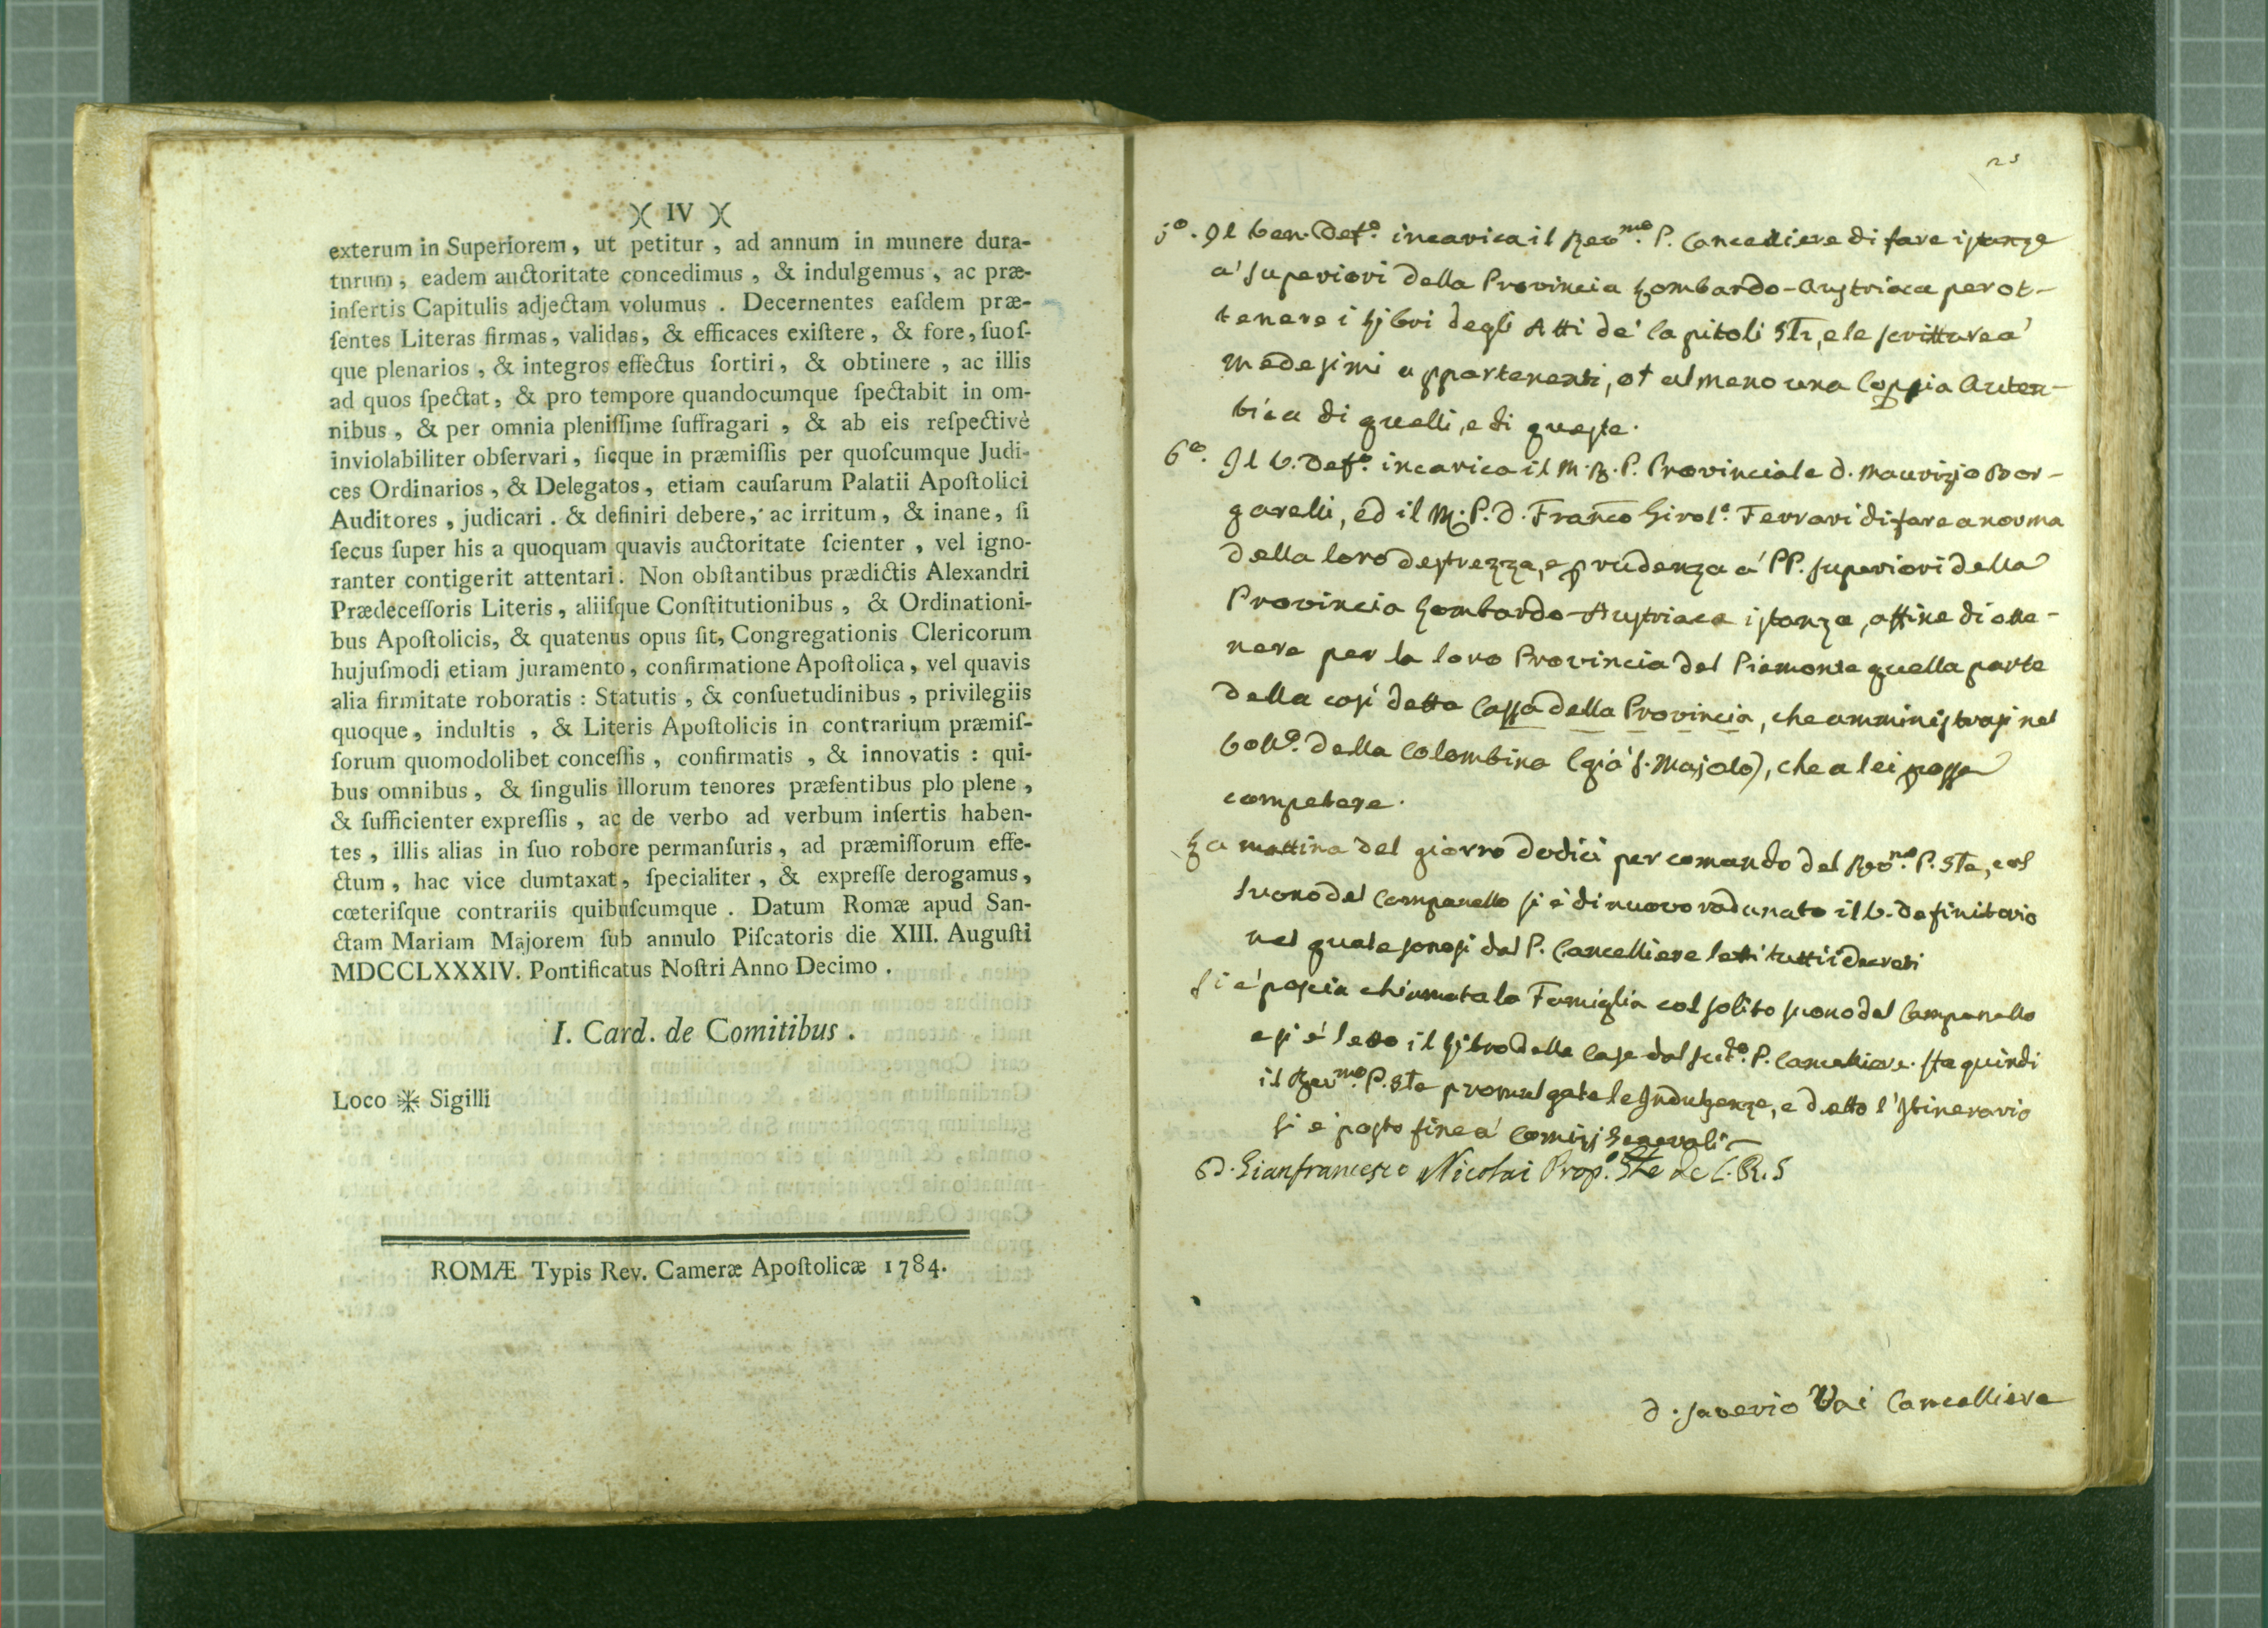 )( IV )(
exterum in Superiorem, ut petitur, ad annum in munere dura-
turum, eadem auctoritate concedimus, & indulgemus, ac præ-
insertis Capitulis adjectam volumus. Decernentes easdem præ-
sentes Literas firmas, validas, & efficaces existere, & fore, suos-
que plenarios, & integros effectus sortiri, & obtinere, ac illis
ad quos spectat, & pro tempore quandocumque spectabit in om-
nibus, & per omnia plenissime suffragari, & ab eis respectivè
inviolabiliter observari, sicque in præmissis per quoscumque Judi-
ces Ordinarios, & Delegatos, etiam causarum Palatii Apostolici
Auditores, judicari. & definiri debere, ac irritum, & inane, si
secus super his a quoquam quavis auctoritate scienter, vel igno-
ranter contigerit attentari. Non obstantibus prædictis Alexandri
Prædecessoris Literis, aliisque Constitutionibus, & Ordinationi-
bus Apostolicis, & quatenus opus sit, Congregationis Clericorum
hujusmodi etiam juramento, confirmatione Apostolica, vel quavis
alia firmitate roboratis: Statutis, & consuetudinibus, privilegiis
quoque, indultis, & Literis Apostolicis in contrarium præmis-
sorum quomodolibet concessis, confirmatis, & innovatis: qui-
bus omnibus, & singulis illorum tenores præsentibus plo plene,
& sufficienter expressis, ac de verbo ad verbum insertis haben-
tes, illis alias in suo robore permansuris, ad præmissorum effe-
ctum, hac vice dumtaxat, specialiter, & expresse derogamus,
cœterisque contrariis quibuscumque. Datum Romæ apud San-
ctam Mariam Majorem sub annulo Piscatoris die XIII. Augusti
MDCCLXXXIV. Pontificatus Nostri Anno Decimo.
I. Card. de Comitibus.
Loco ※ Sigilli
ROMÆ Typis Rev. Cameræ Apostolicæ 1784.
5º. Il Ven. Defº. incarica il Revmo. P. Cancelliere di fare istanze
a' Superiori della Provincia Lombardo-Austriaca per ot-
tenere i Libri degli Atti de' Capitoli, e le scritture a'
medesimi appartenenti, o almeno una Coppia Auten-
tica di quelli, e di queste.
6º. Il V. Defº. incarica il M. R. P. Provinciale D. Maurizio Bor-
garelli, ed il M. P. D. Franco Girolº. Ferrari di fare a norma
della loro destrezza, e prudenza a' PP. Superiori della
Provincia Lombardo-Austriaca istanza, affine di otte-
nere per la loro Provincia del Piemonte quella parte
della così detta Cassa della Provincia, che amministrasi nel
Collº. della Colombina (già S. Majolo), che a lei possa
competere.
La mattina del giorno dodici per comando del Revmo. P. Gle, col
suono del Campanello si è di nuovo radunato il V. Definitorio
nel quale sonosi dal P. Cancelliere letti tutti i decreti
Si è poscia chiamata la Famiglia col solito suono del Campanello
e si è letto il Libro delle Case dal sudº. P. Cancelliere. Ha quindi
il Revmo. P. Gle promulgate le Indulgenze, e detto l'Itinerario
si è posto fine a' Comizj Generali
D. Gianfrancesco Nicolai Prop. Gle de C. R. S
D. Saverio Vai Cancelliere